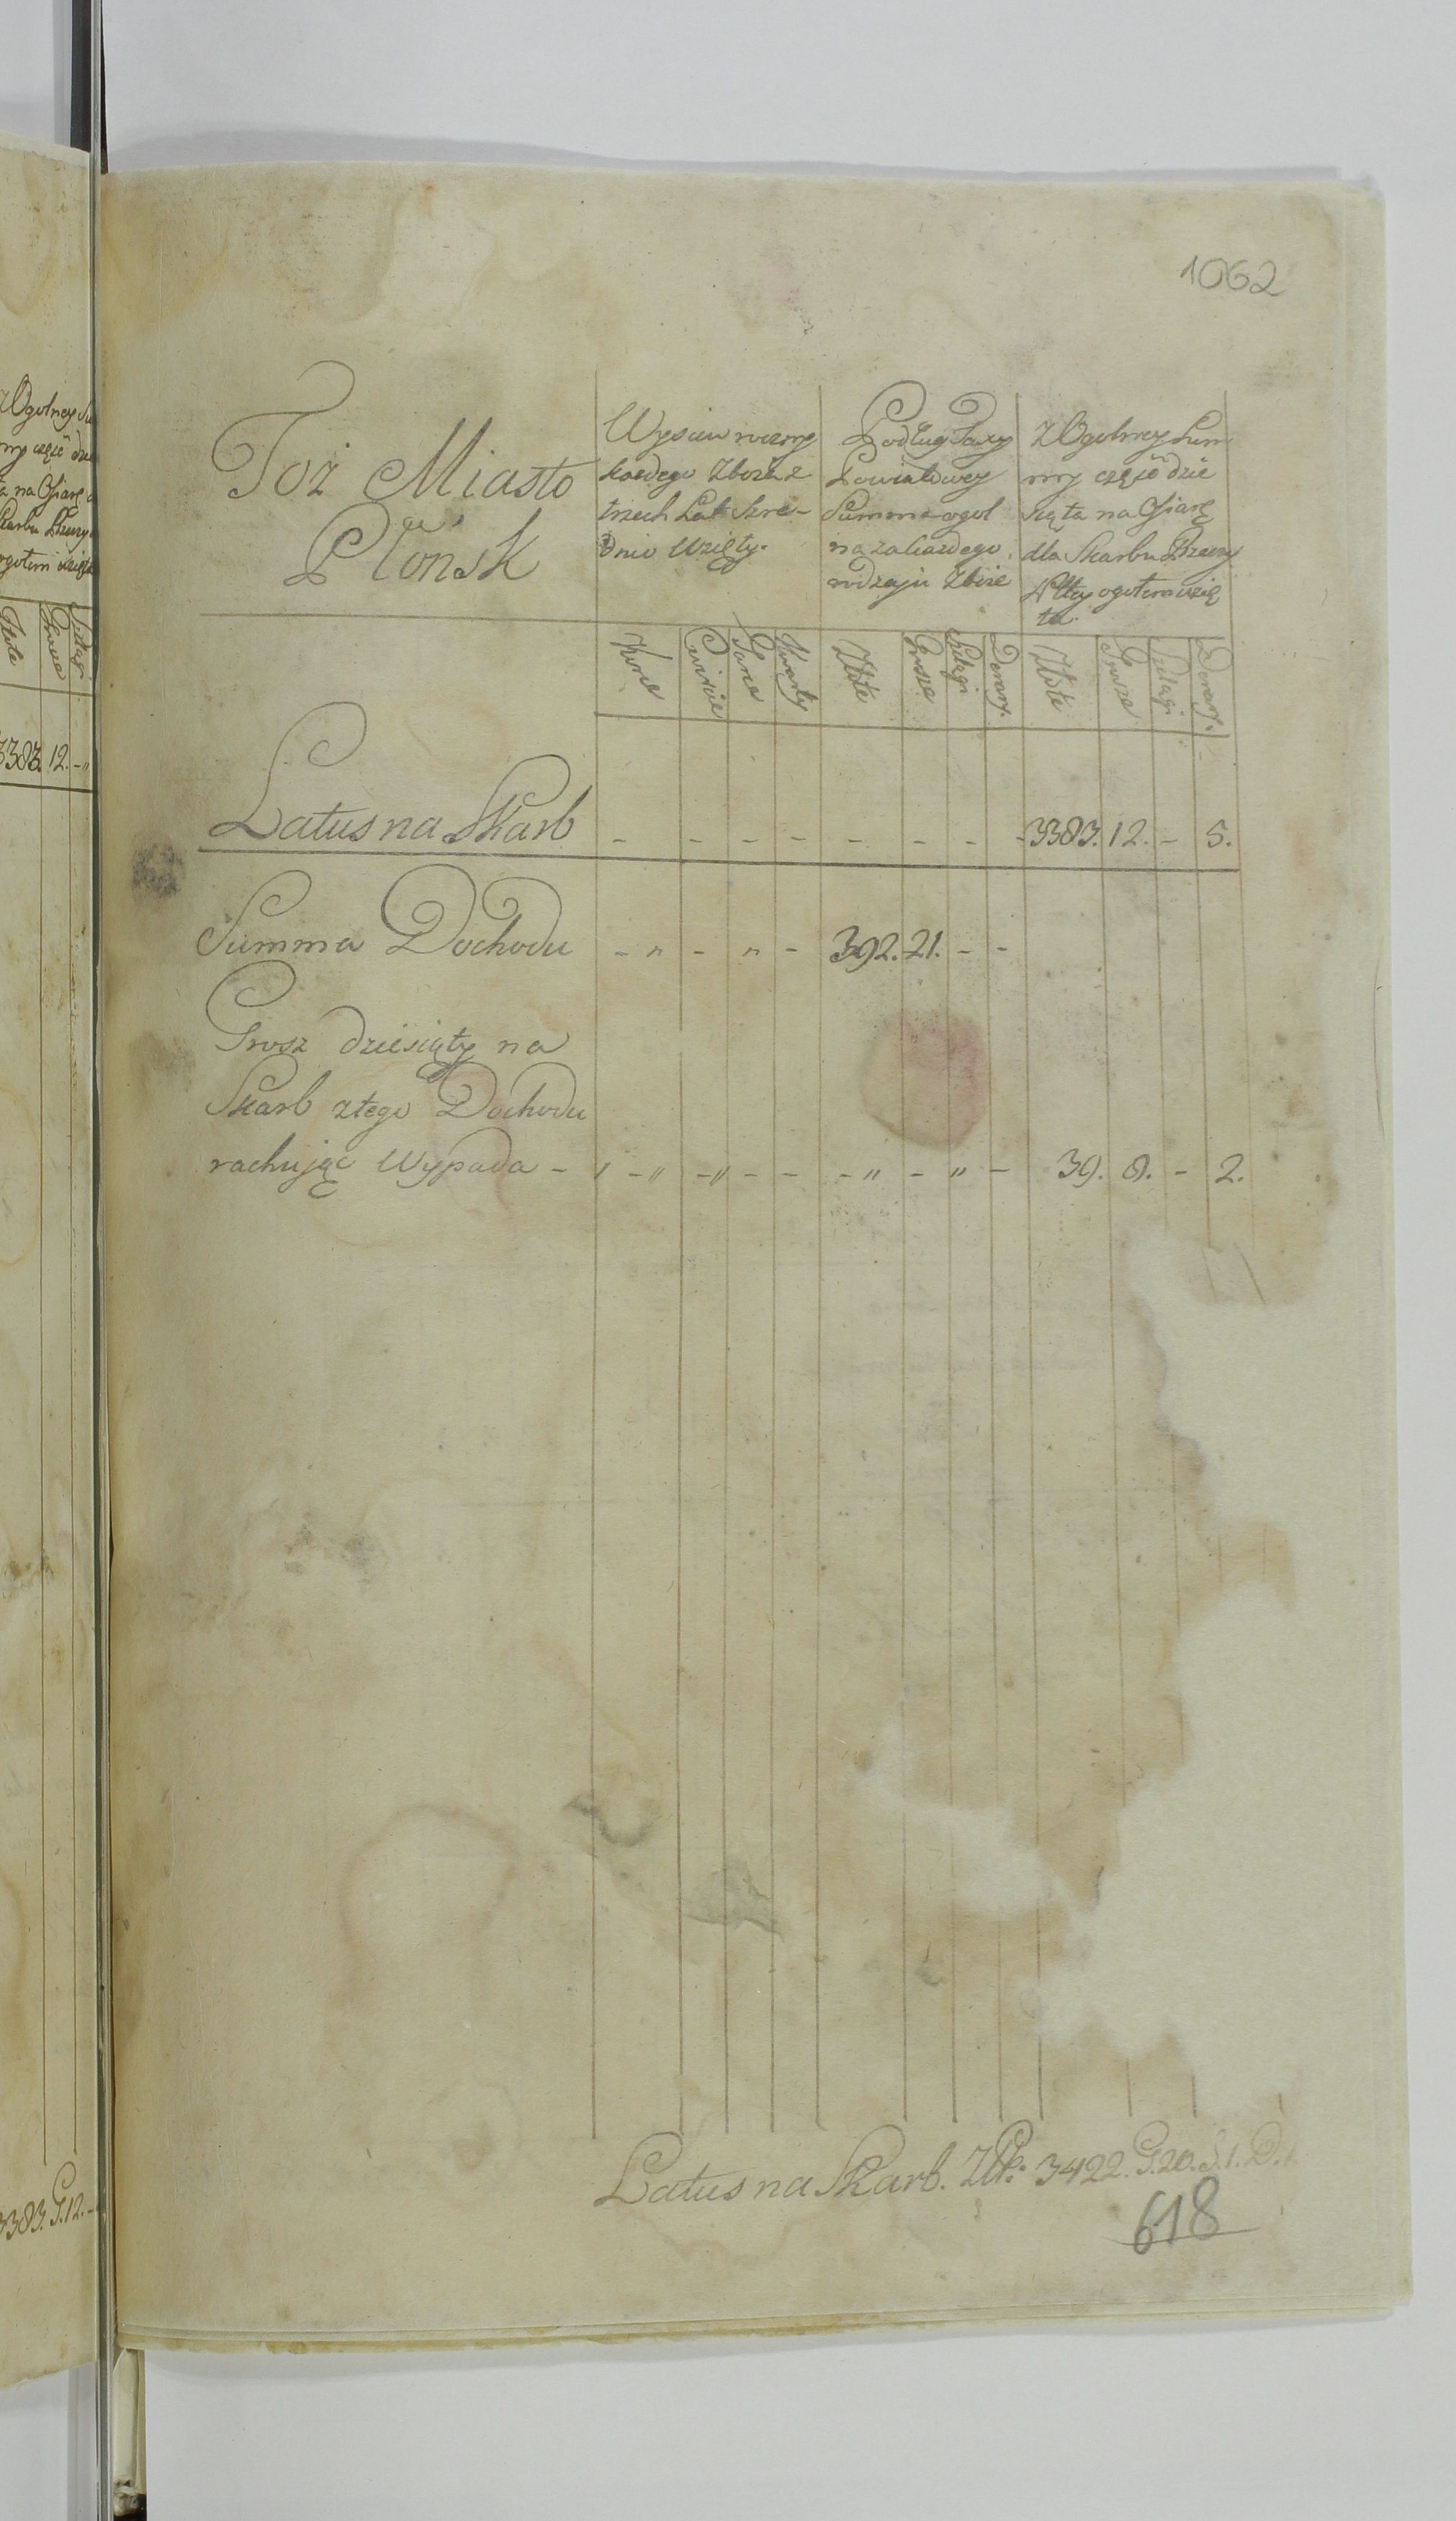 1062
Toż Miasto
Płońsk
Wysiew roczny
każdego Zboża z
trzech Lat Szre-
dnio Wzięty.
Podług Taxy
Powiatowey
Summa ogol
na za każdego
rodzaju Zboże
Z Ogolney Sum
my część dzie
siąta na Ofiarę
dla Skarbu Rzeczy
Pltey ogołem wzię
ta.
Korce Cwircie Garce Kwarty Złote Grosze Szelągi Denary. Złote Grosze Szelągi Denary.
Latus na Skarb - - - - - - - - 3383. 12. - 5.
Summa Dochodu - „ - „ - 392. 21. - -
Grosz dziesiąty na
Skarb z tego Dochodu
rachując Wypada - „ - „ - „ - - - „ - „ - 39. 8. - 2.
Latus na Skarb. ZłP: 3422. G. 20. S. 1. D.
618
Z Ogolney Su
my część dzie
ta na Ofiarę d
Skarbu Rzeczy
ogołem wzięta
Złote Grosze Szelągi
3383. 12. - „
3383. G. 12. -